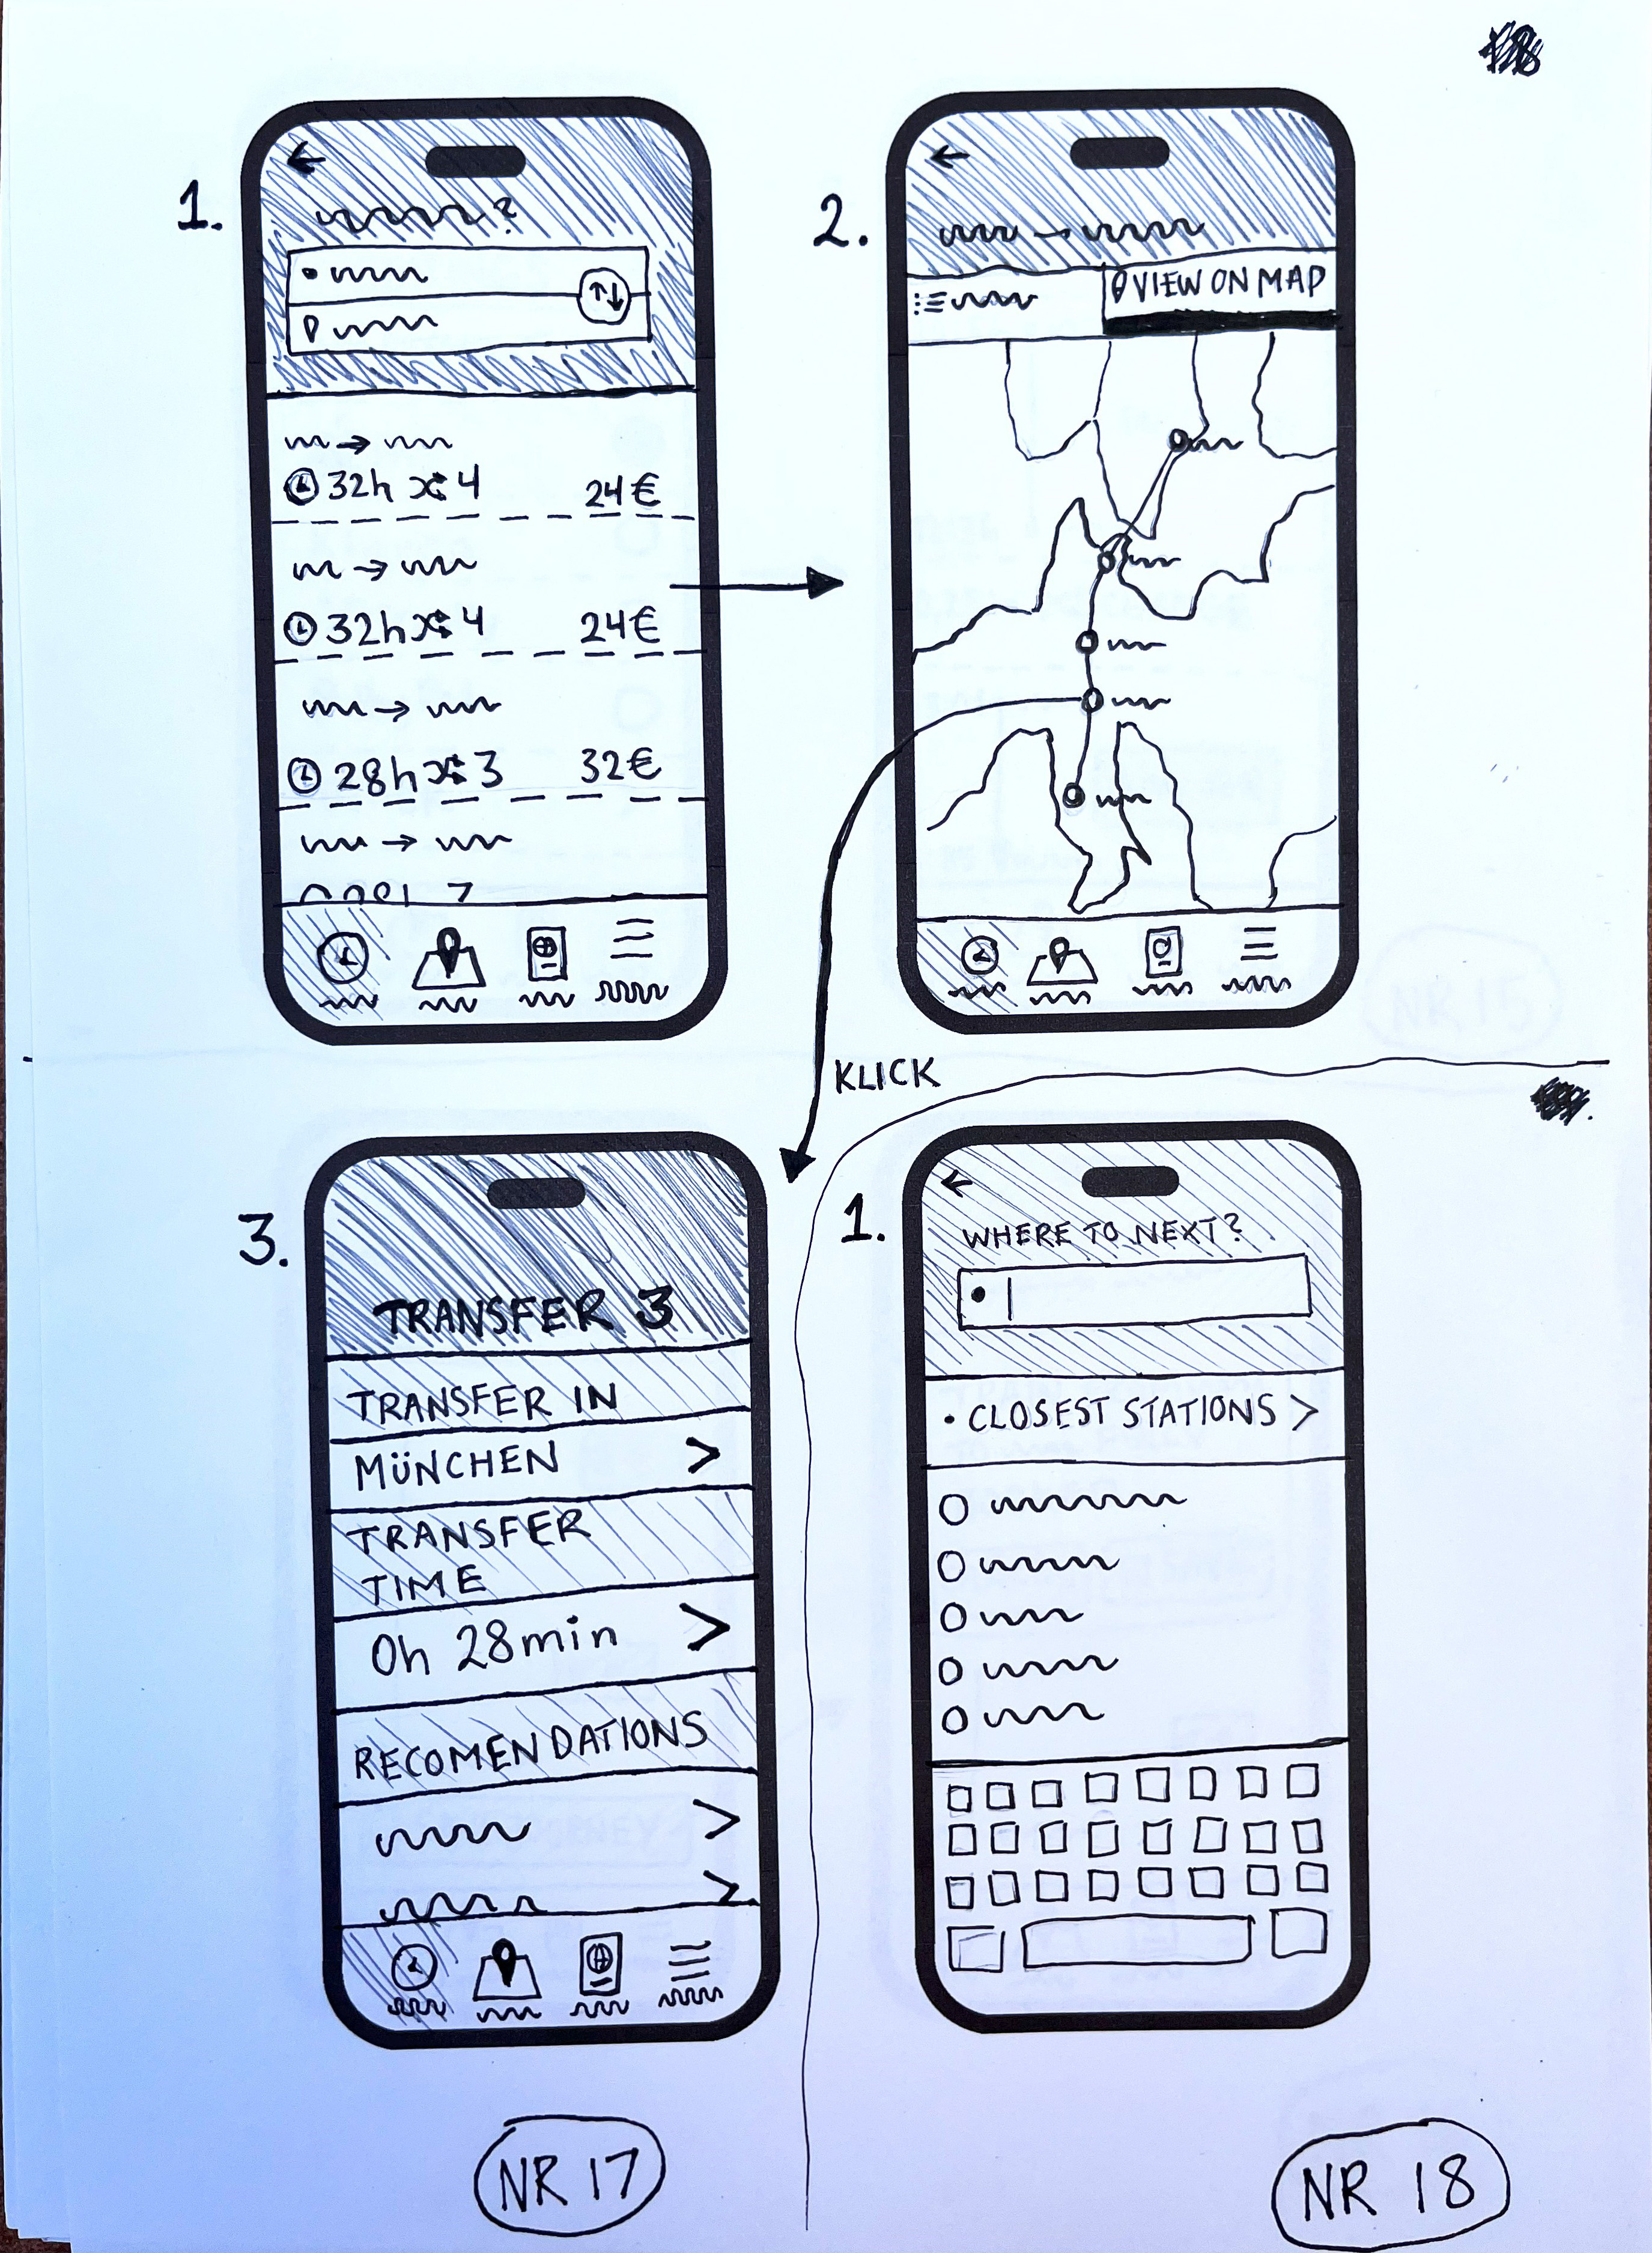 1.
?
32h 4 24€
32h 4 24€
28h 3 32€
2.
VIEW ON MAP
KLICK
3.
TRANSFER 3
TRANSFER IN
MÜNCHEN >
TRANSFER
TIME
0h 28min >
RECOMENDATIONS
>
>
NR 17
1.
WHERE TO NEXT?
• CLOSEST STATIONS >
NR 18